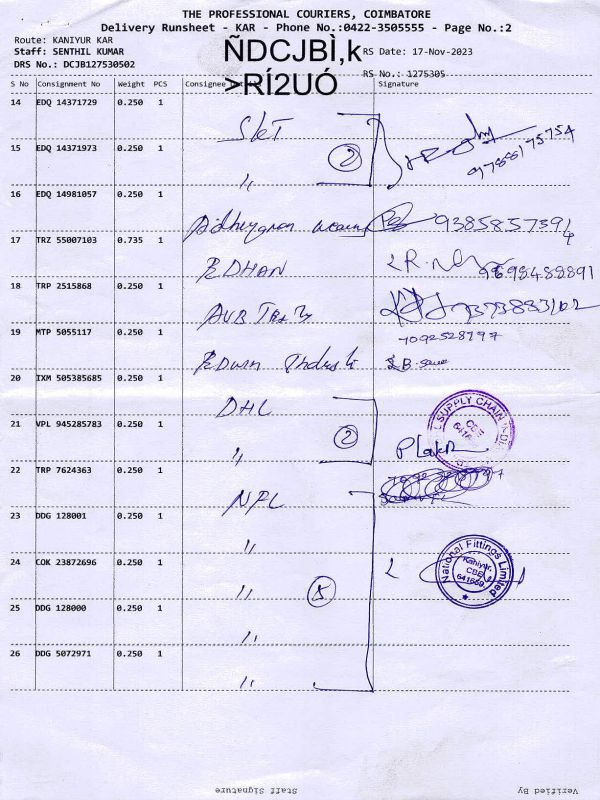 THE PROFESSIONAL COURIERS, COIMBATORE
Delivery Runsheet - KAR - Phone No.:0422-3505555 - Page No.:2
Route: KANIYUR KAR
Staff: SENTHIL KUMAR
DRS No.: DCJB127530502
ÑDCJBÌ,k
>RÍ2UÓ
RS Date: 17-Nov-2023
RS No.: 1275305
S No Consignment No Weight PCS Consignee Signature
14 EDQ 14371729 0.250 1
SKT
15 EDQ 14371973 0.250 1
〃 2 9788175754
16 EDQ 14981057 0.250 1
9385857394
17 TRZ 55007103 0.735 1
EDHAN
18 TRP 2515868 0.250 1
19 MTP 5055117 0.250 1
7092528797
Edwin
20 IXM 505385685 0.250 1
DHL
SUPPLY CHAIN
21 VPL 945285783 0.250 1
〃 2
22 TRP 7624363 0.250 1
NFL
23 DDG 128001 0.250 1
〃
24 COK 23872696 0.250 1
〃 5
National Fittings Limited
Kaniyur
CBE
641659
25 DDG 128000 0.250 1
〃
26 DDG 5072971 0.250 1
〃
Staff Signature Verified By